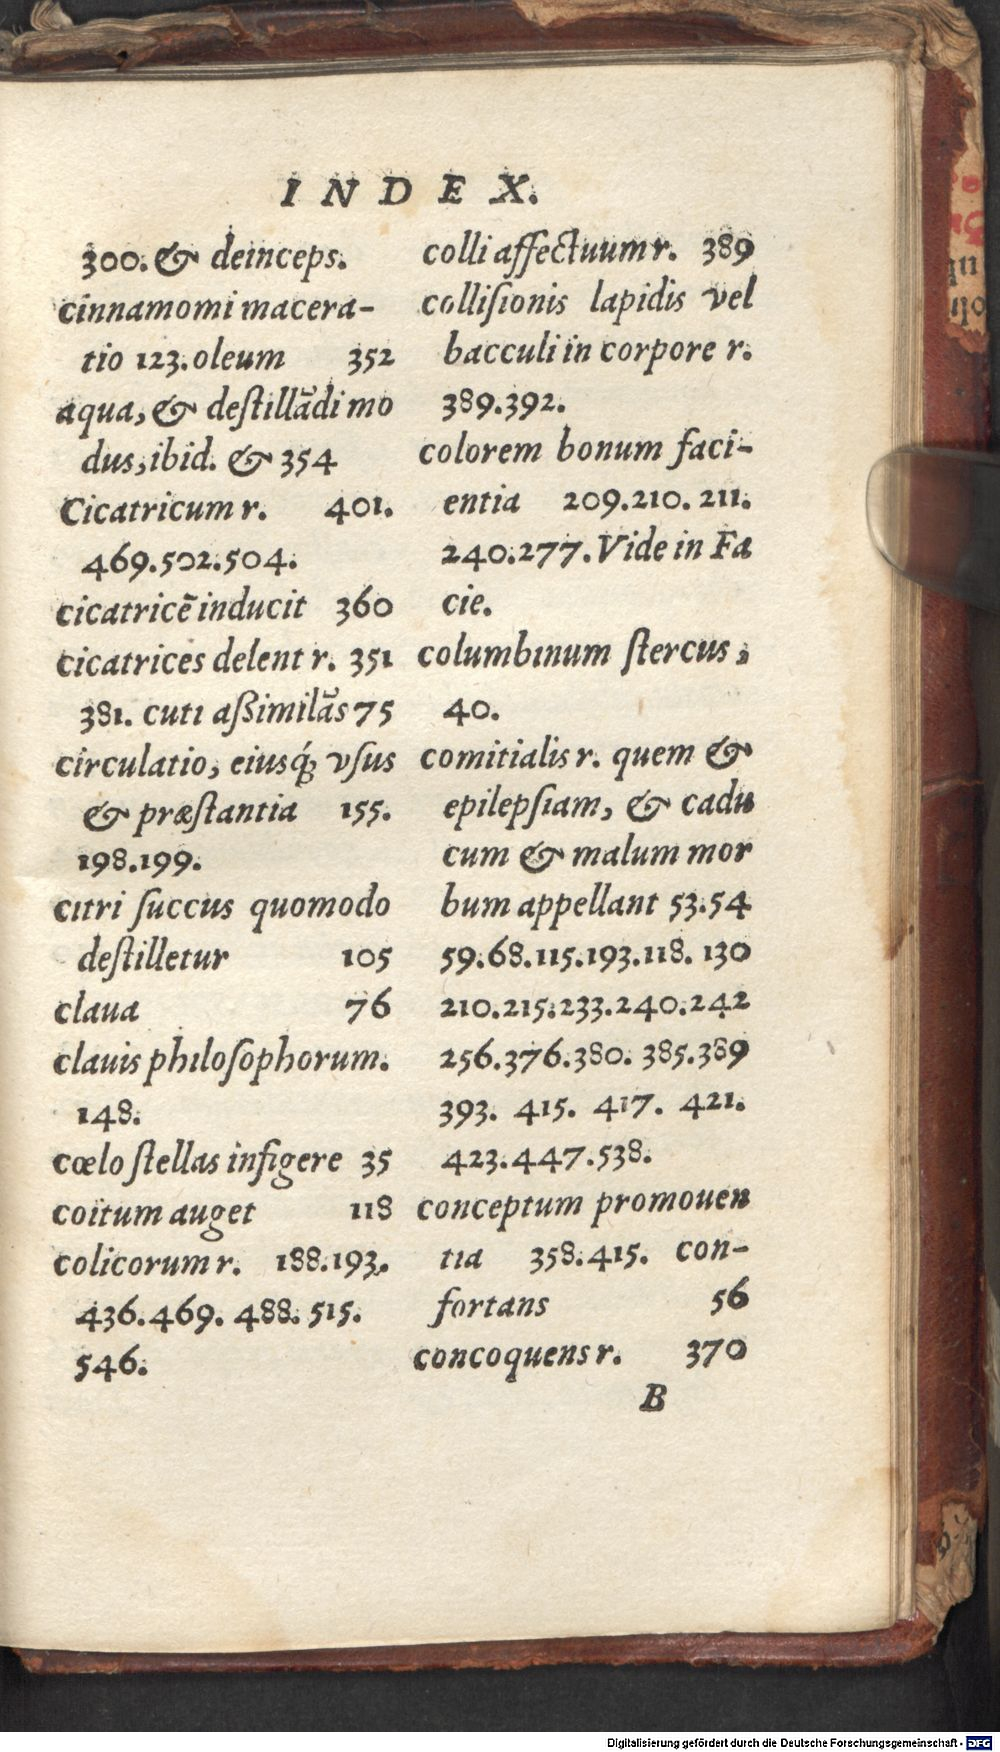 INDEX.
300. & deinceps.
cinnamomi macera-
tio 123. oleum 352
aqua, & destillādi mo
dus, ibid. & 354
Cicatricum r. 401.
469.502.504.
cicatricē inducit 360
cicatrices delent r. 351
381. cuti aßimilās 75
circulatio, eiusq́; vsus
& præstantia 155.
198.199.
citri succus quomodo
destilletur 105
claua 76
clauis philosophorum.
148.
cœlo stellas infigere 35
coitum auget 118
colicorum r. 188.193.
436.469. 488. 515.
546.
colli affectuum r. 389
collisionis lapidis vel
bacculi in corpore r.
389.392.
colorem bonum faci-
entia 209.210. 211.
240.277. Vide in Fa
cie.
columbinum stercus,
40.
comitialis r. quem &
epilepsiam, & cadu
cum & malum mor
bum appellant 53.54
59.68.115.193.118. 130
210.215.233.240.242
256.376.380. 385.389
393. 415. 417. 421.
423.447.538.
conceptum promouen
tia 358.415. con-
fortans 56
concoquens r. 370
B
Digitalisierung gefördert durch die Deutsche Forschungsgemeinschaft - DFG